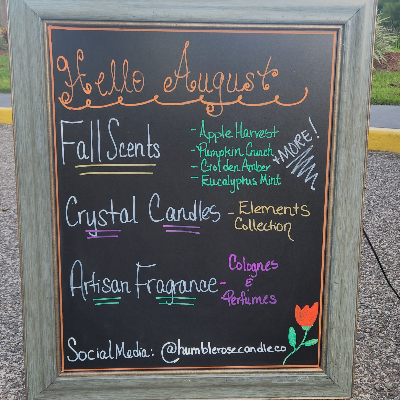 Hello August
Fall Scents
- Apple Harvest
- Pumpkin Crunch
- Golden Amber
- Eucalyptus Mint
+MORE!
Crystal Candles - Elements
Collection
Artisan Fragance - Colognes
&
Perfumes
Social Media: @humblerosecandleco